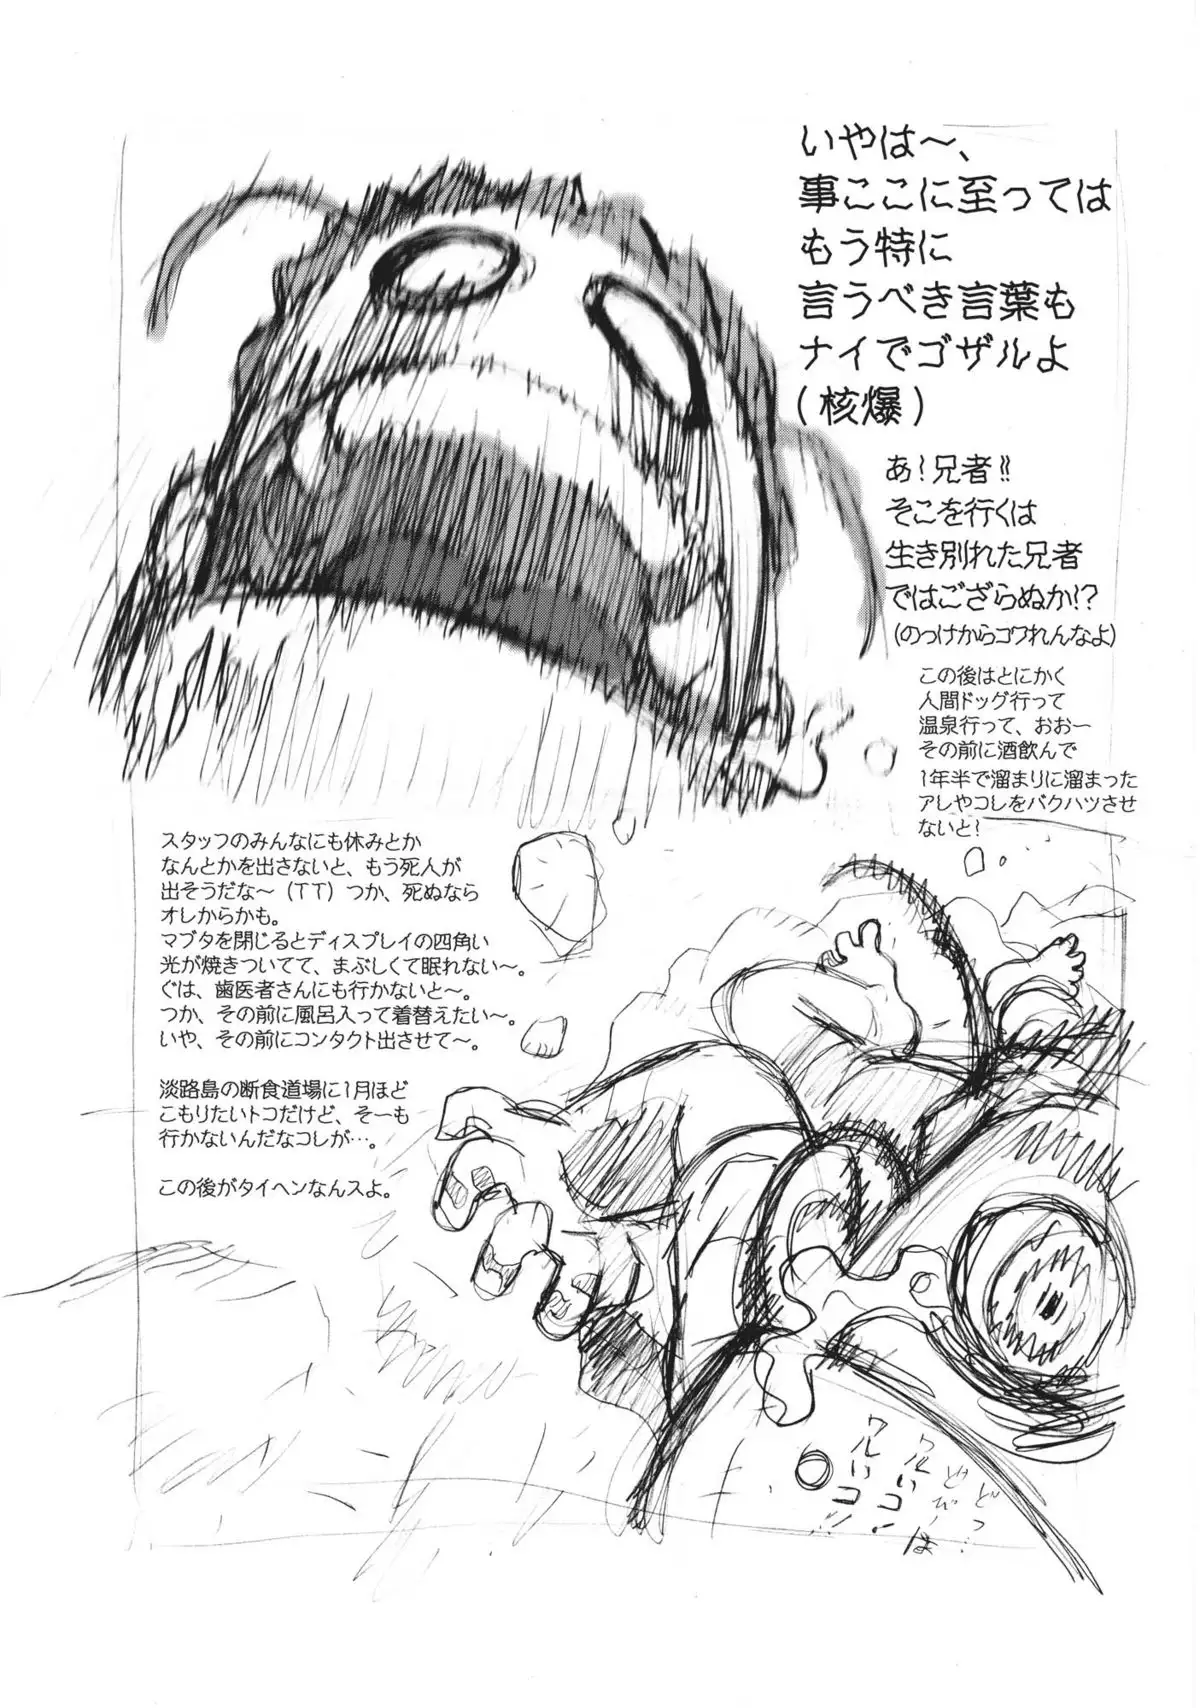 いやは〜、
事ここに至っては
もう特に
言うべき言葉も
ナイでゴザルよ
(核爆)
あ!兄者!!
そこを行くは
生き別れた兄者
ではござらぬか!?
(のっけからコワれんなよ)
この後はとにかく
人間ドッグ行って
温泉行って、おお〜
その前に酒飲んで
1年半で溜まりに溜まった
アレやコレをバクハツさせ
ないと!
スタッフのみんなにも休みとか
なんとかを出さないと、もう死人が
出そうだな〜(TT)つか、死ぬなら
オレからかも。
マブタを閉じるとディスプレイの四角い
光が焼きついてて、まぶしくて眠れない〜。
ぐは、歯医者さんにも行かないと〜。
つか、その前に風呂入って着替えたい〜。
いや、その前にコンタクト出させて〜。
淡路島の断食道場に1月ほど
こもりたいトコだけど、そーも
行かないんだなコレが…。
この後がタイヘンなんスよ。
どっ…
とびーは
ワルいコ!
ワルいコ!!